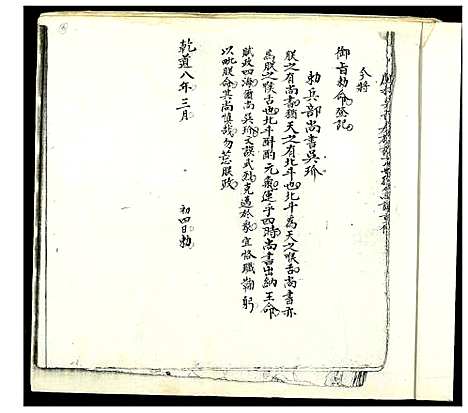 今將
御旨勅命登記
勅兵部尚書吳玠
朕之有尚書猶天之有北斗也北斗為天之喉舌尚書亦
為朕之喉舌也北斗酙酌元氣運乎四時尚書出納王命
賦政四海爾尚吳玠文謨武烈克邁於眾宜恪職鞠躬
以毗朕命其尚慎哉勿替朕政
乾道八年三月 初四日勅